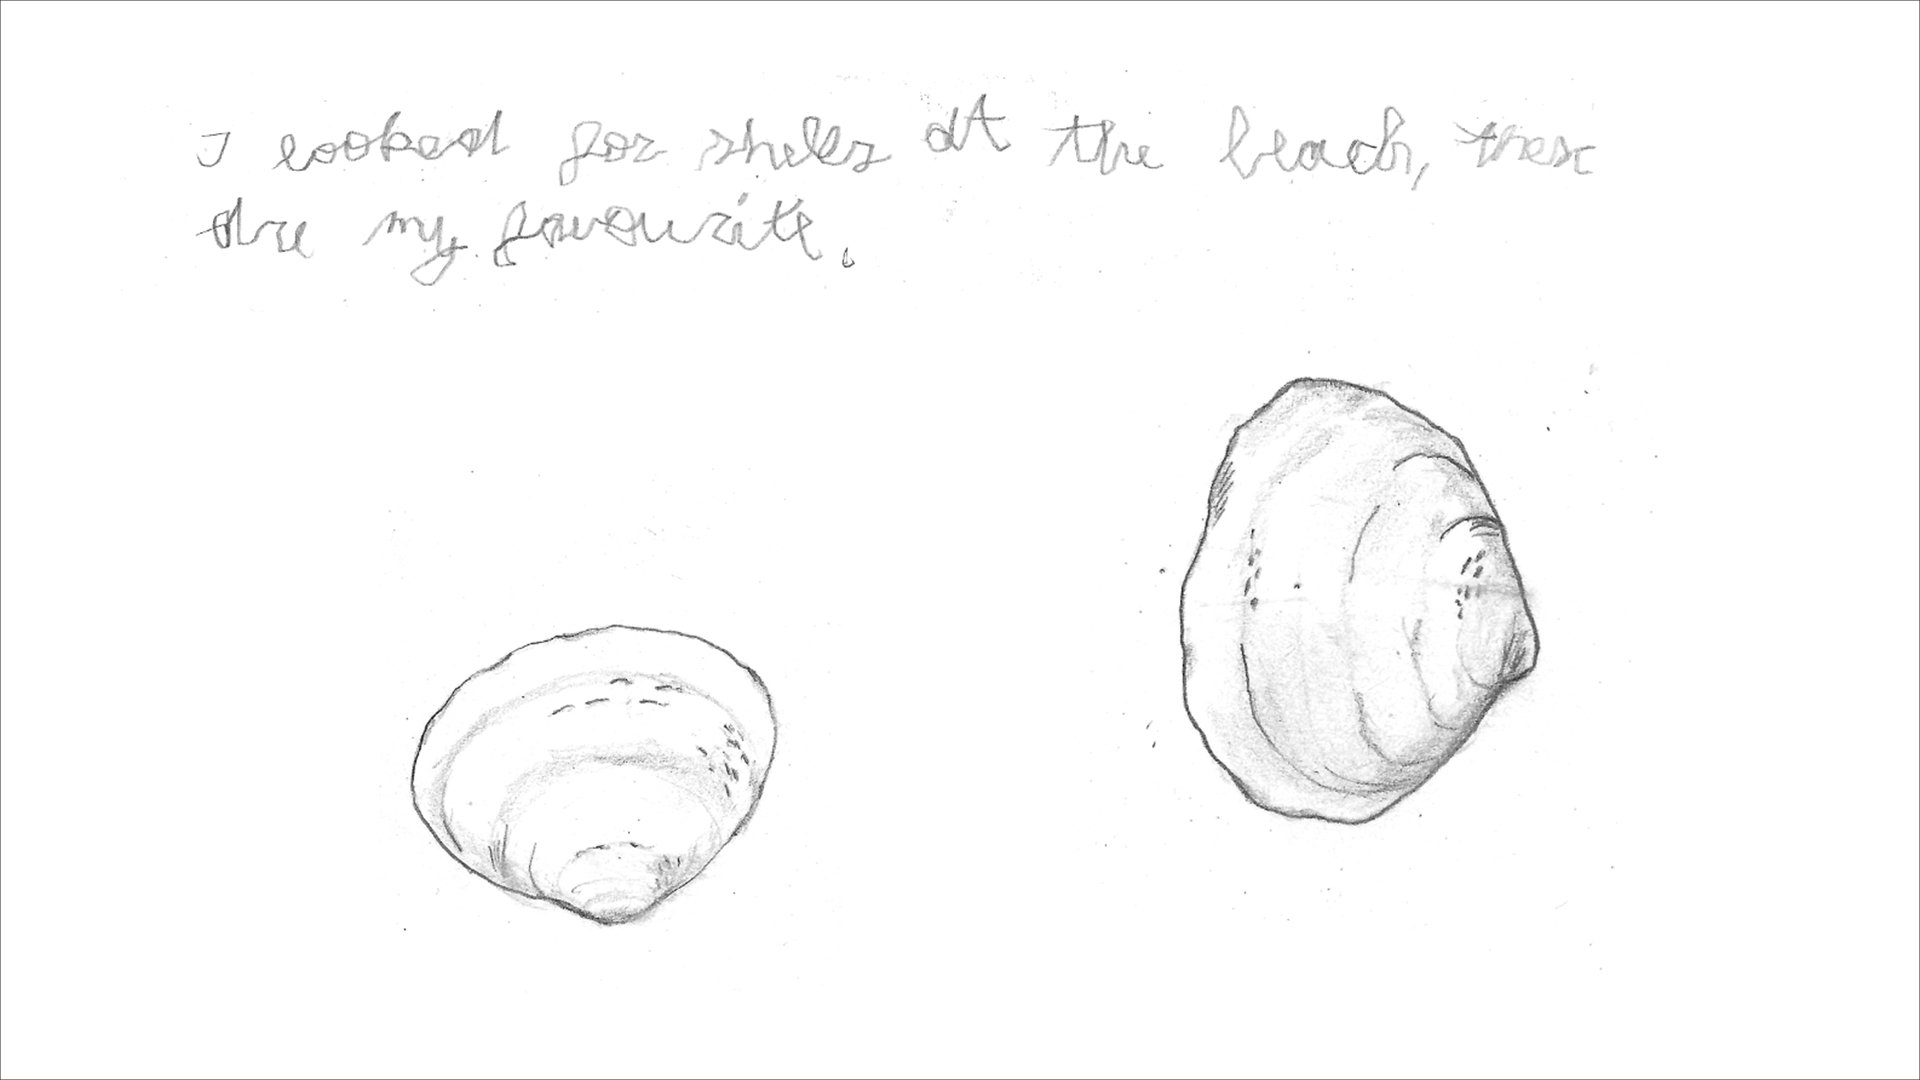 I looked for shells at the beach, these
are my favourite.